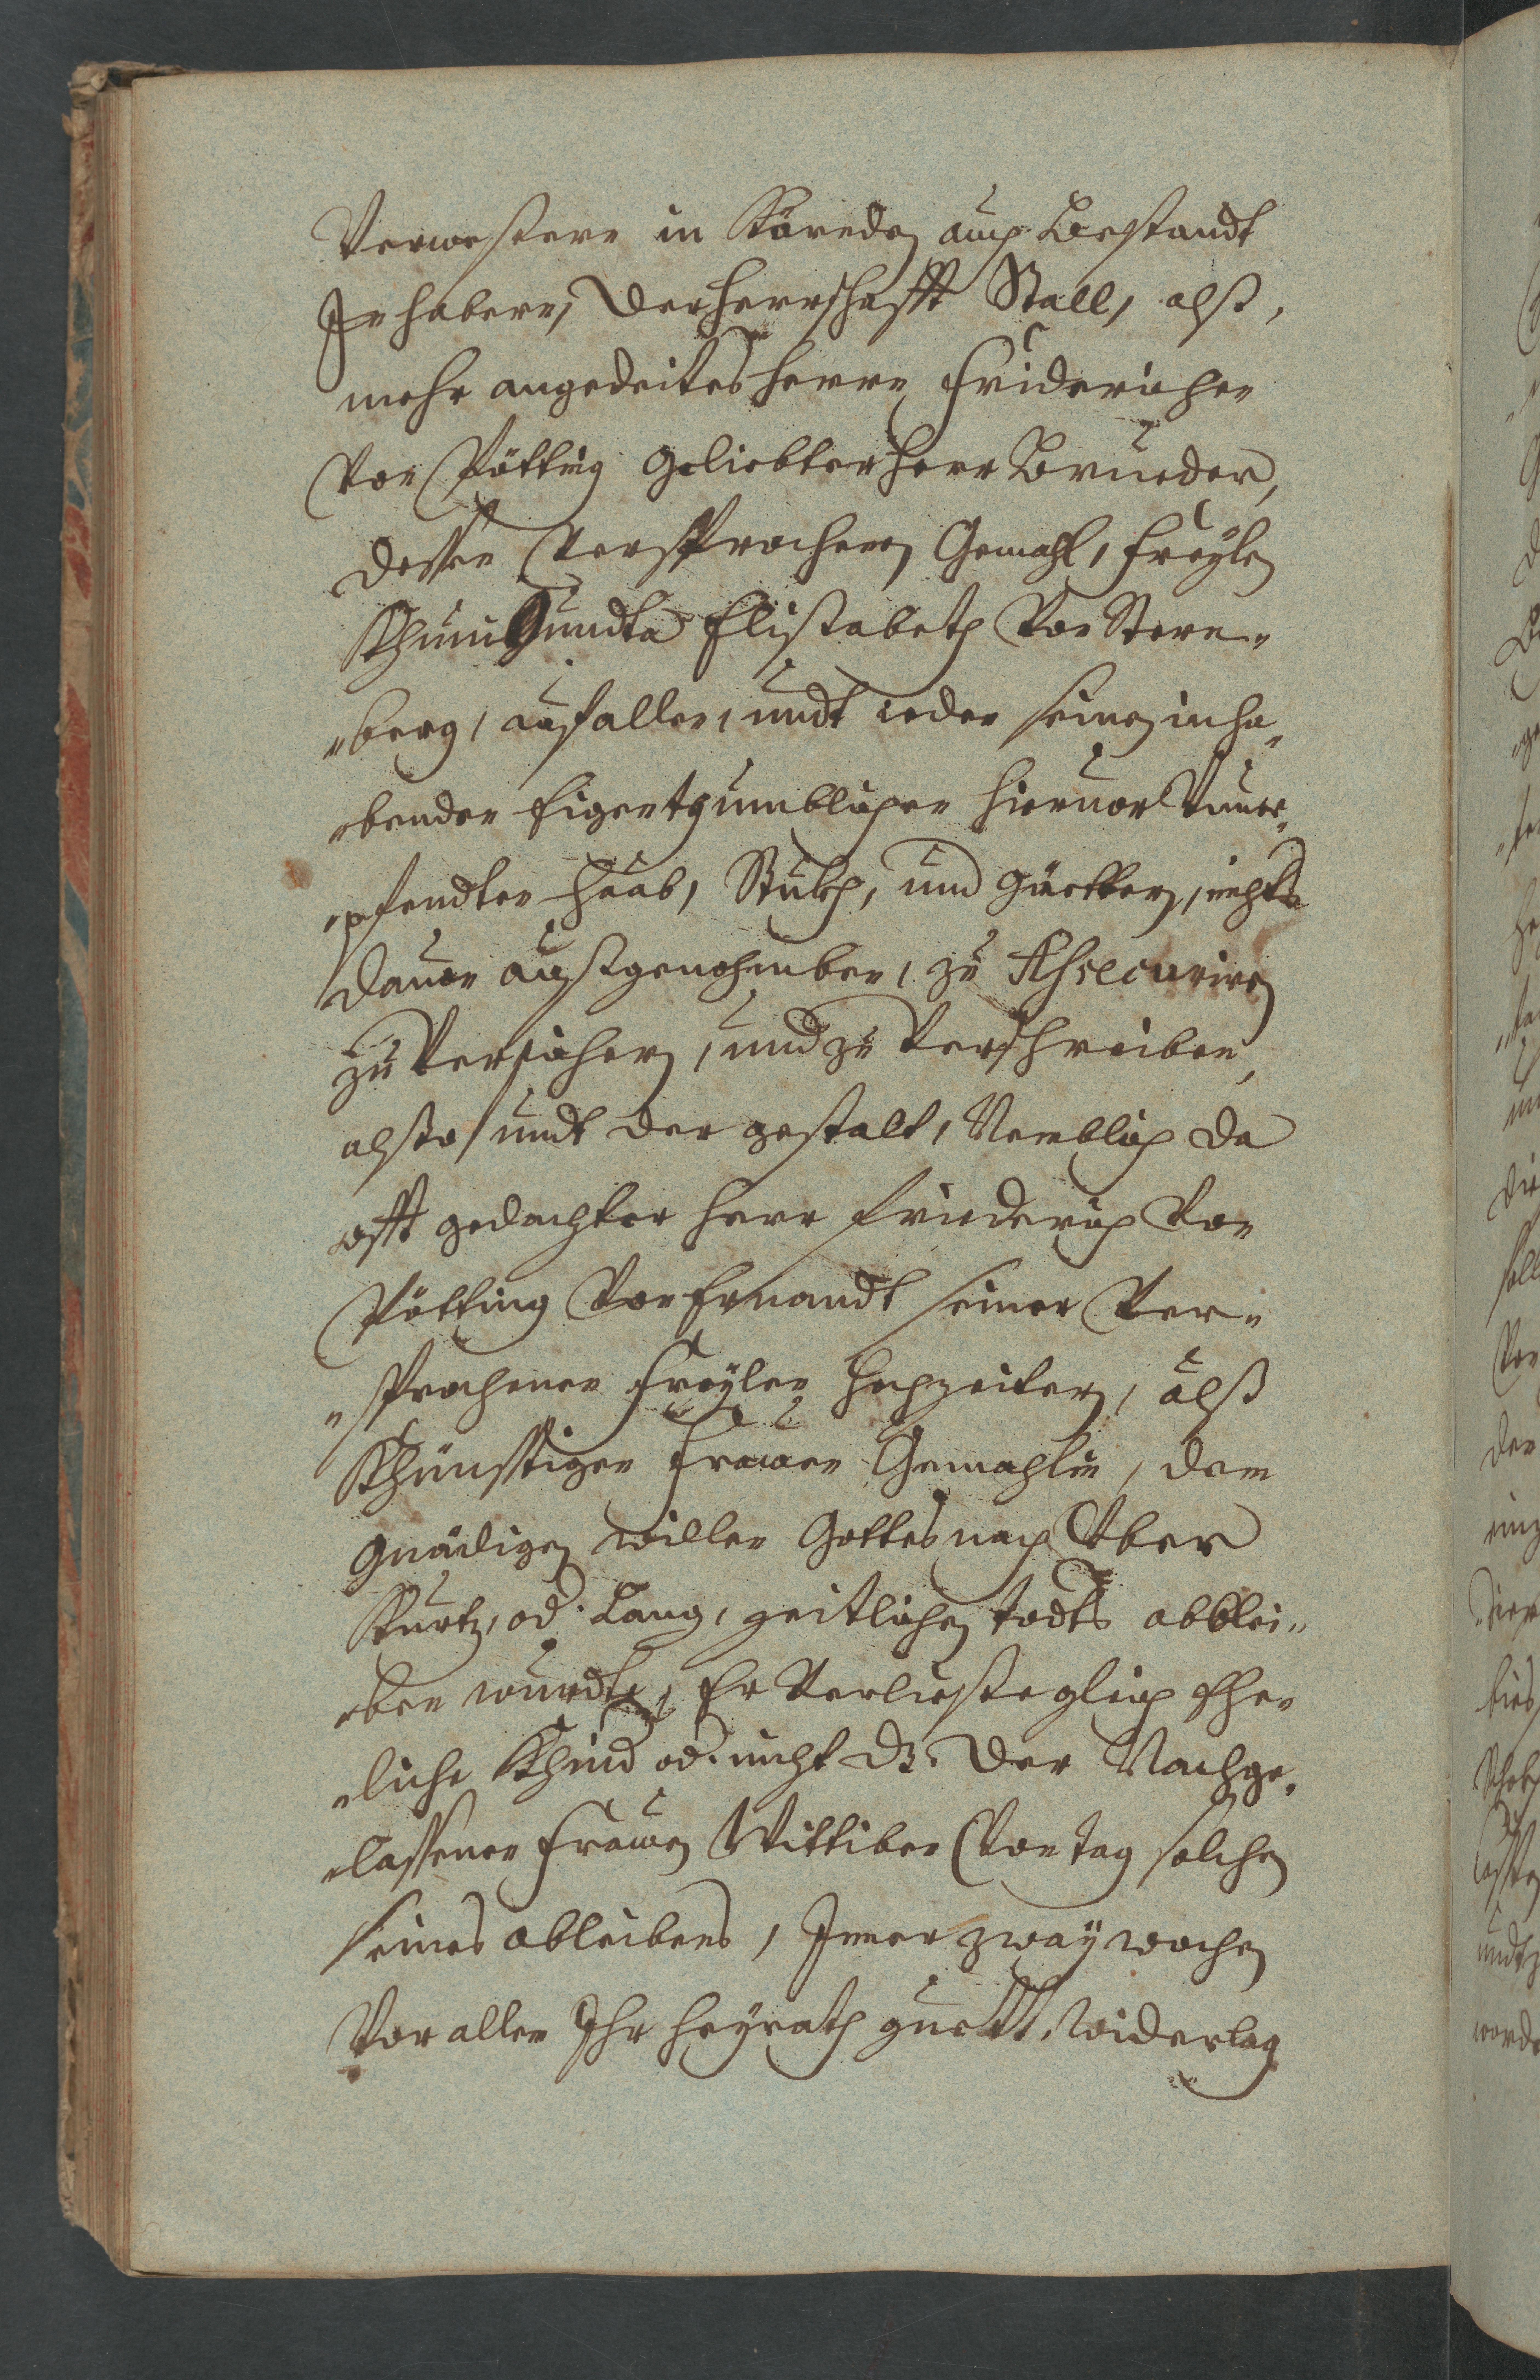 Verwesern in Kärnden auch Bestandt
Inhabern, der herrschafft Stall, alß,
mehr angedeites herrn Friderichen
von Pötting geliebter herr Brueder,
dessen versprochenen Gemahl, Freyle
Khunigundta Elisabeth von Stern¬
¬berg, auf allen, undt ieden seinen inha¬
¬benden Eigenthumblichen hieruor Vuuer¬
¬pfendten Haab, Stukh, und güettern, nichts
dauon außgenohmben, zu Assecurirn
zu Versichern, und zu Verschreiben,
alßo, undt der gestalt, Nemblich da
offt gedachter herr Friederich von
Pötting vor Ernandt seiner Ver¬
¬sprochenen Freylen hochzeiterin, alß
Khünfftigen Frawen Gemahlin, dem
gnädigen willen Gottes nach Vber
Kurtz, od. Lang, zeitlichen todts abblei¬
¬ben wurdte, Er Verließe gleich Ehe¬
¬liche Khind od. nicht dz. der Nachge¬
¬lassenen Frawen Wittiben von tag solchen
seines ableibens, Inner zway wochen
Vor allen Ihr heyrath guett, Widerlag